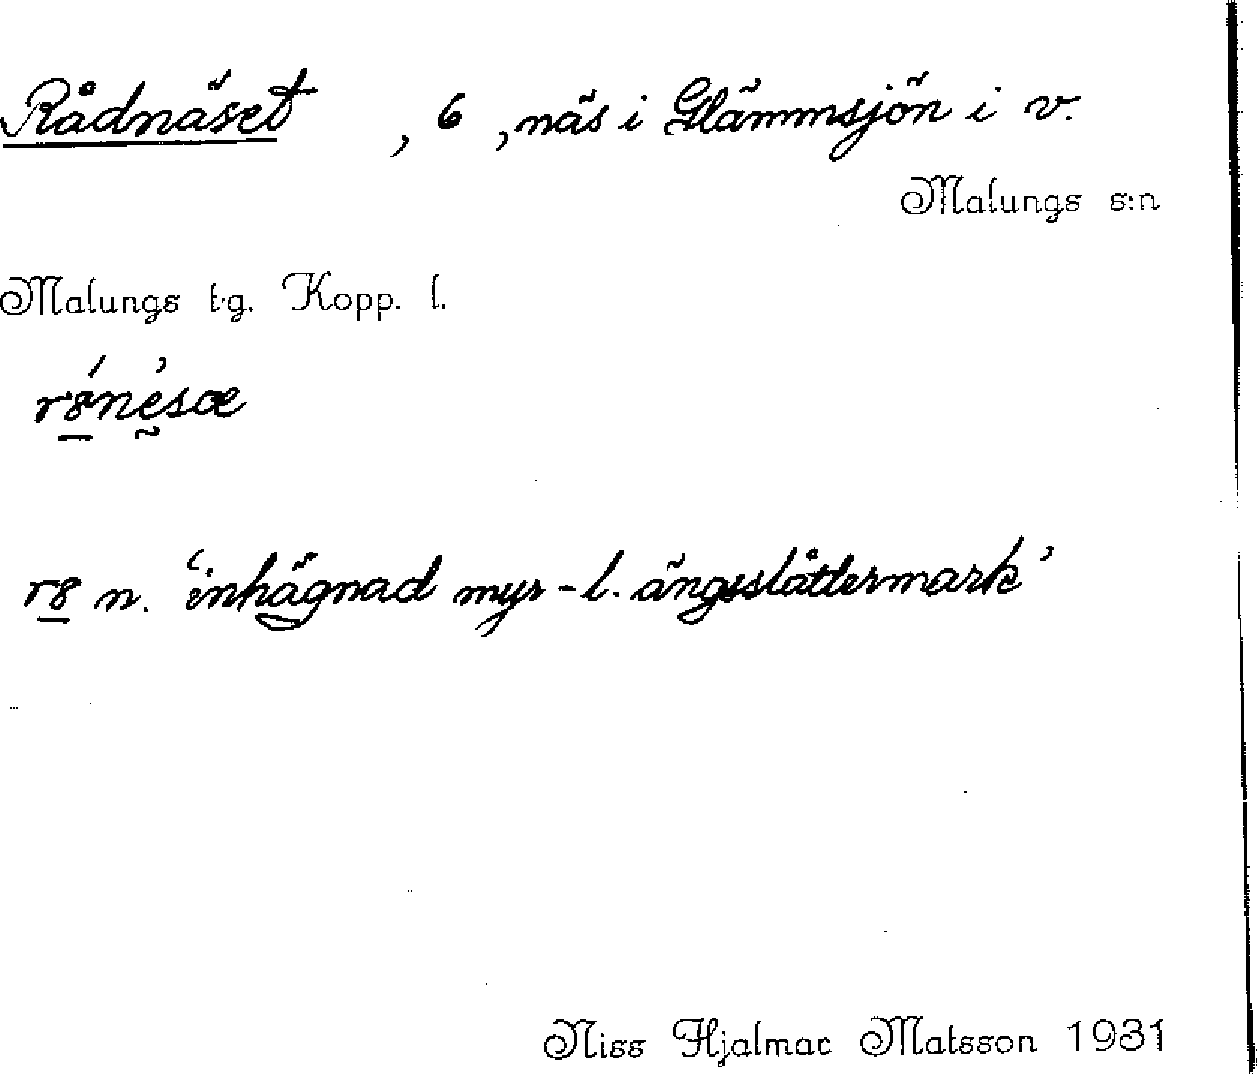 Rådnäset , 6 , näs i Glämmsjön i v.
Malungs s:n
Malungs t:g. Kopp. l.
n. 'inhägnad myr- l. ängsslåttermark'
Niss Hjalmar Matsson 1931